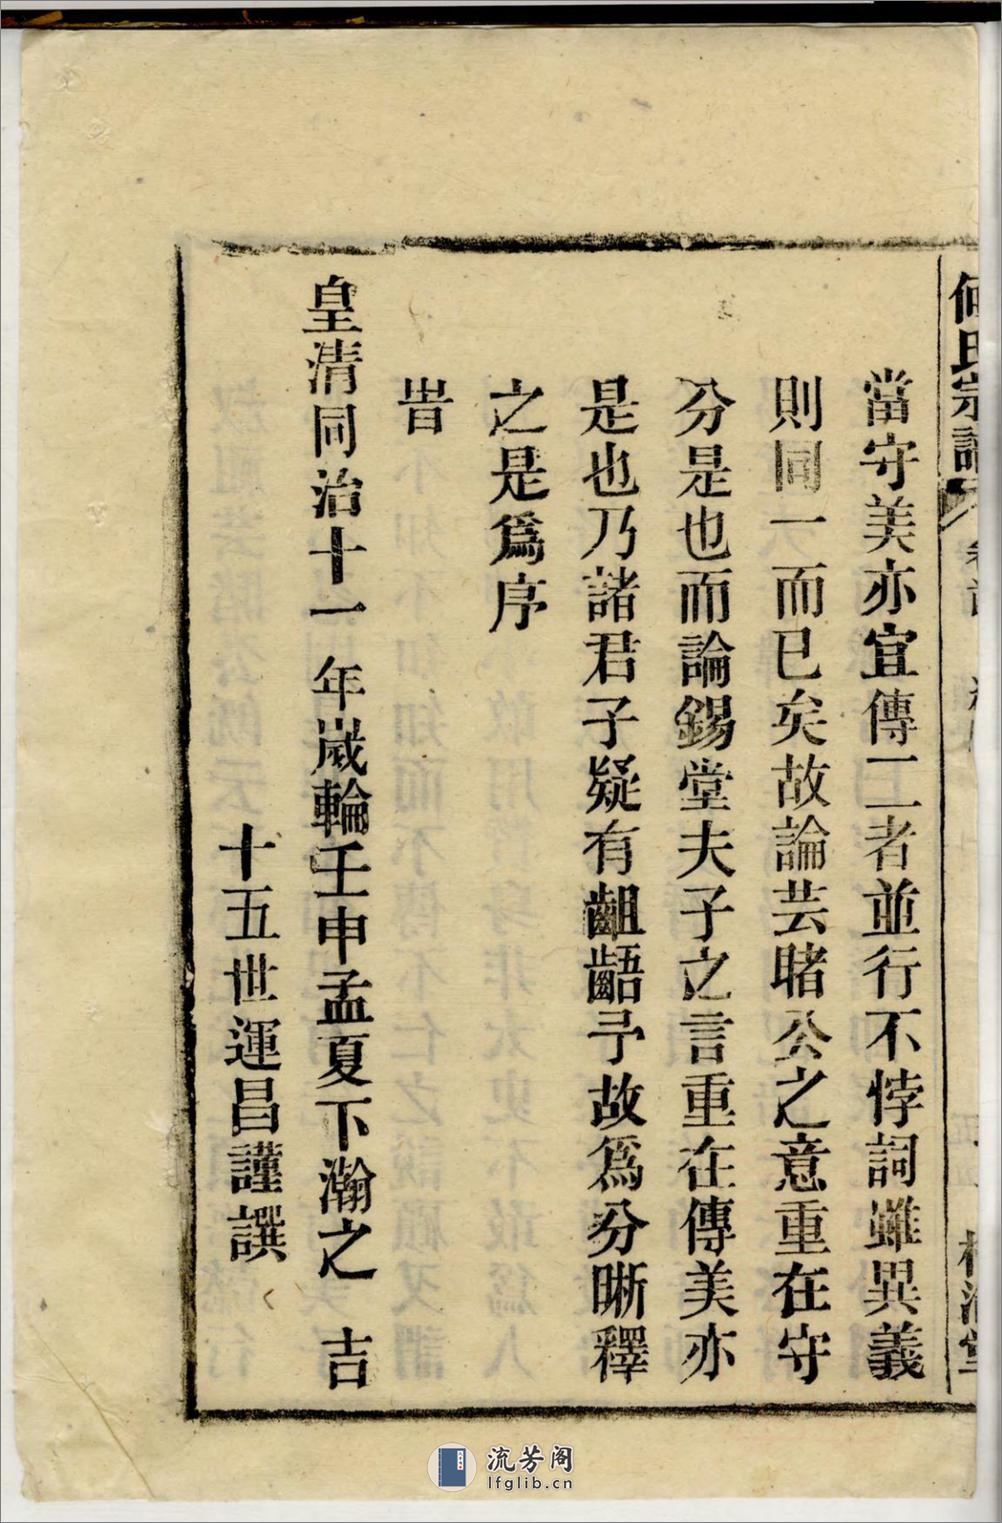 何氏宗譜 卷首
當守美亦宜傳二者並行不悖詞雖異義
則同一而已矣故論芸暏公之意重在守
分是也而論錫堂夫子之言重在傳美亦
是也乃諸君子疑有齟齬予故為分晰釋
之是為序
旹
皇清同治十一年嵗輪壬申孟夏下瀚之 吉
十五世運昌謹譔
流芳阁
lfglib.cn